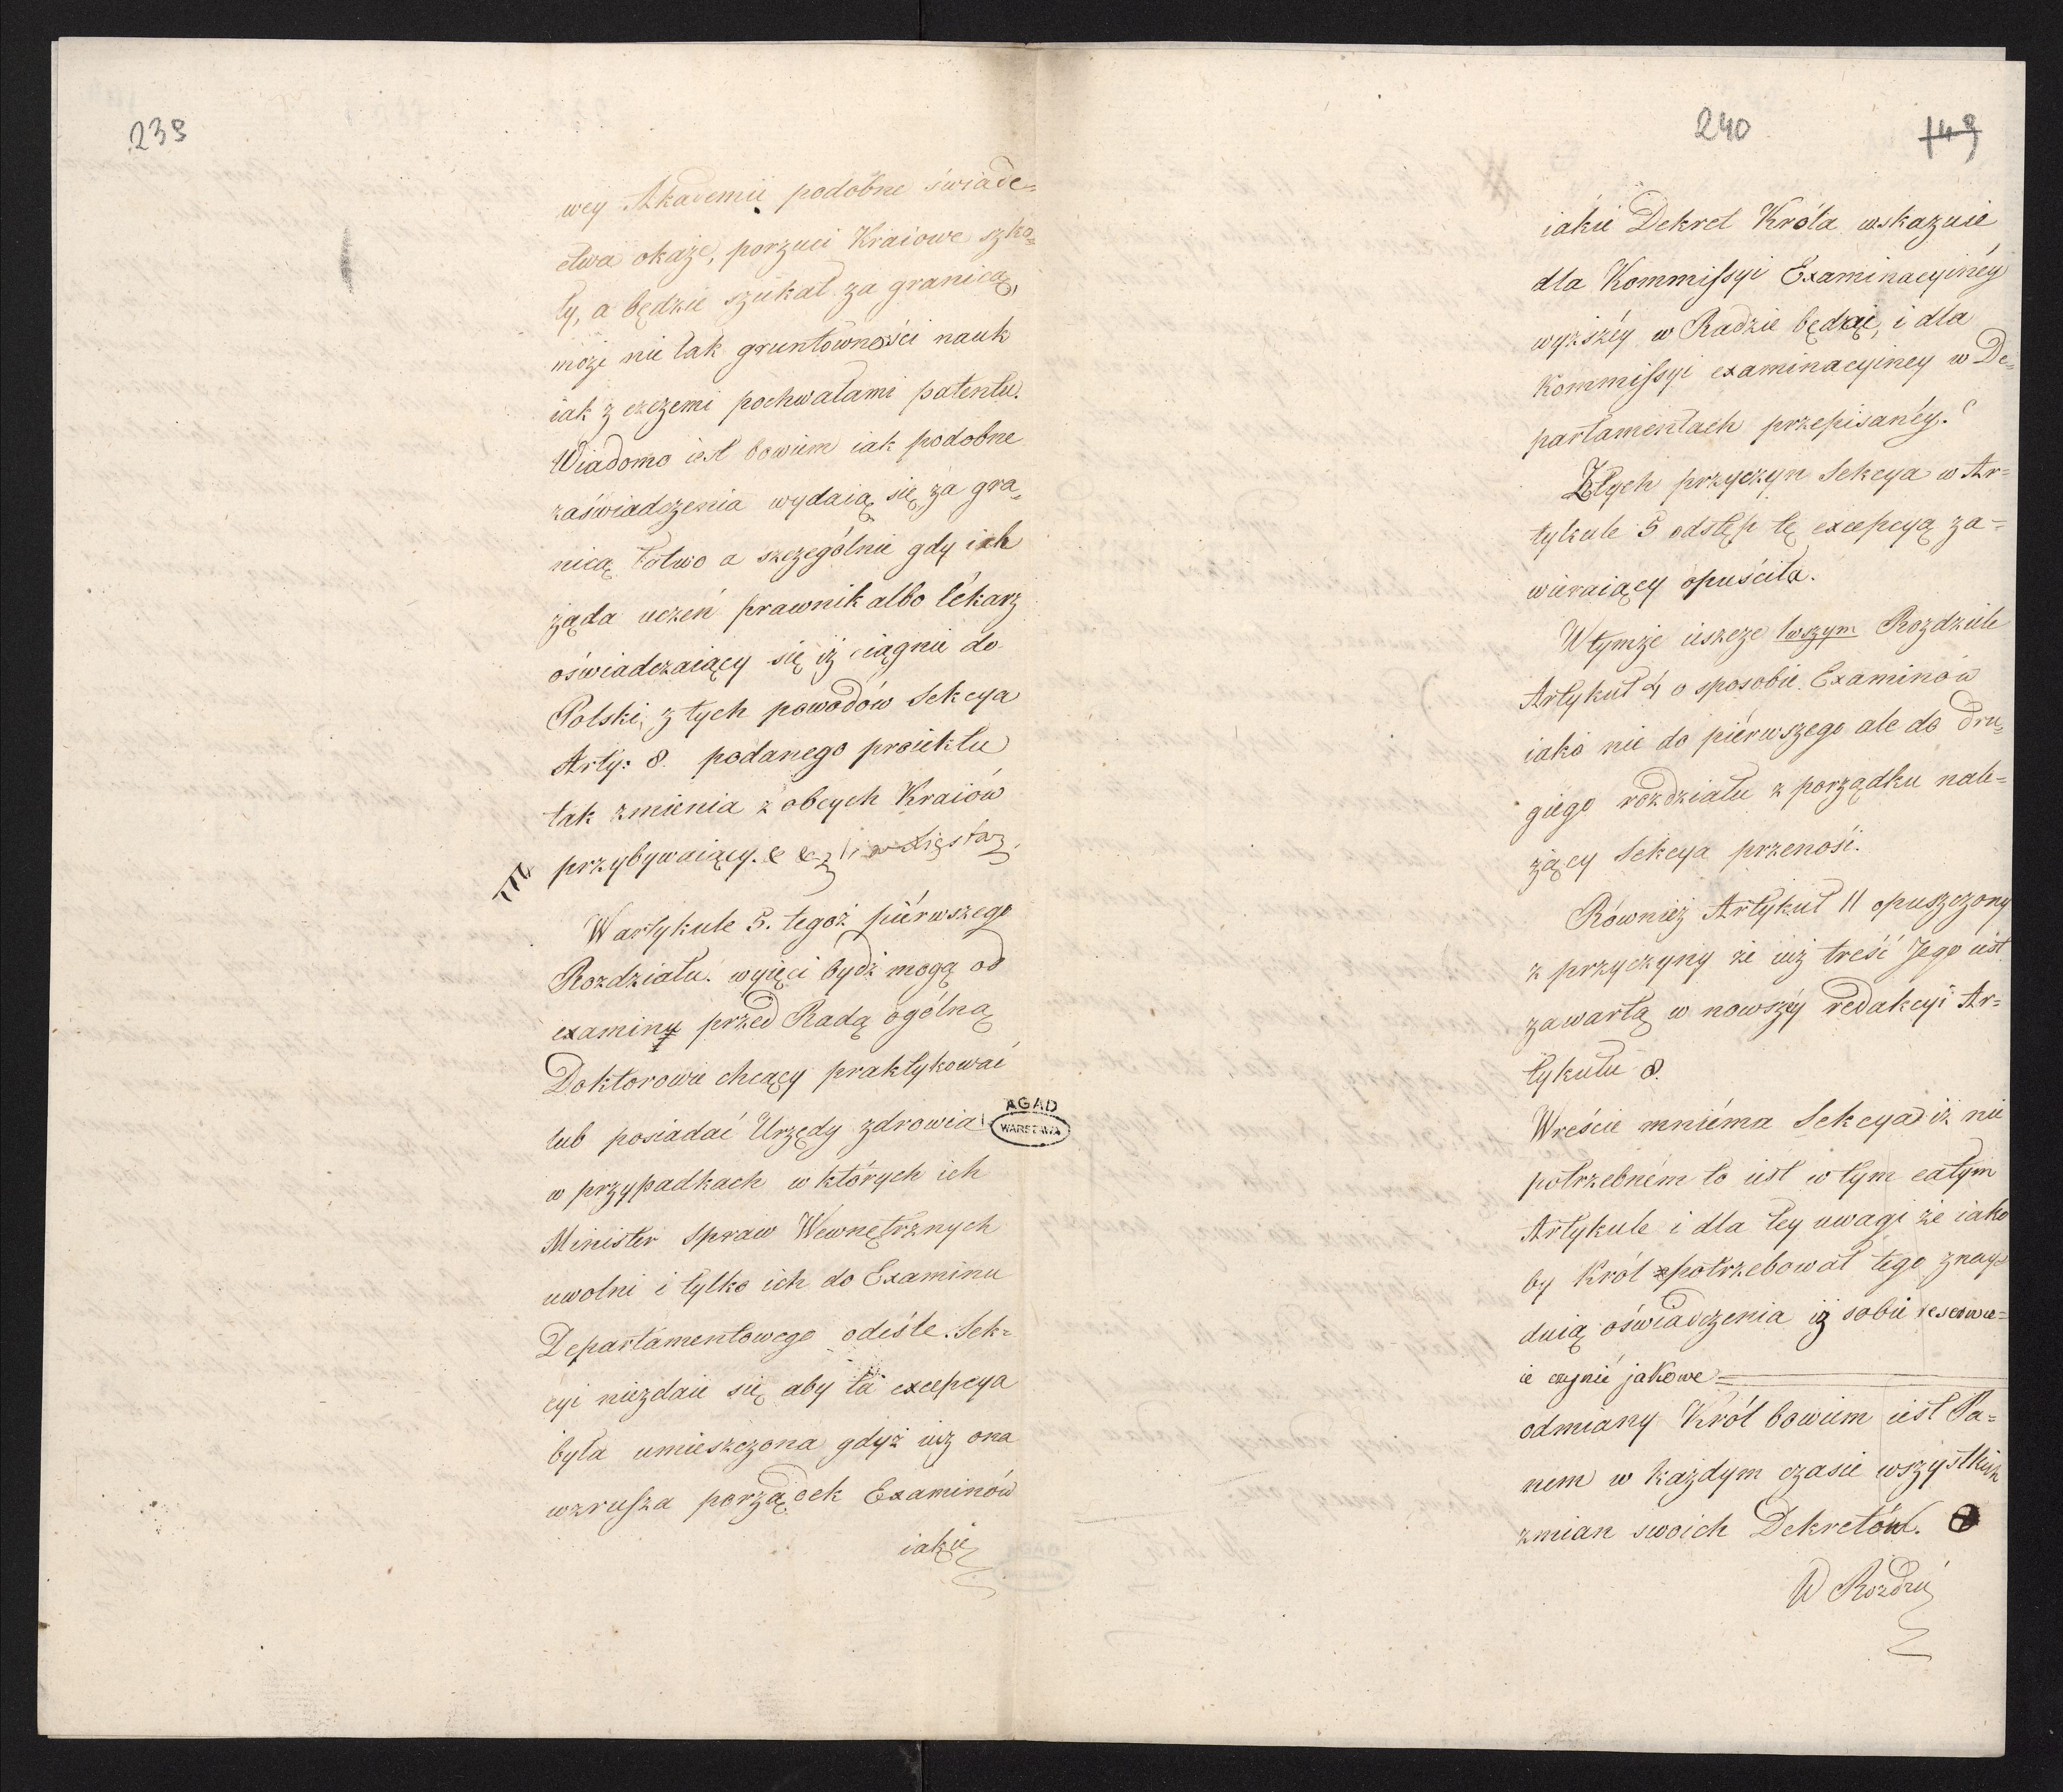 239
wey Akademii podobne świade=
ctwa okaże, porzuci Kraiowe szko=
ły, a będzie szukał za granicą,
może nie tak gruntowności nauk
iak z czczemi pochwałami patentu.
Wiadomo iest bowiem iak podobne
zaświadczenia wydaią się za gra=
nicą łatwo a szczególnie gdy ich
żąda uczeń prawnik albo lékarz
oświadczaiący się iż ciągnie do
Polski, z tych powodów Sekcya
Arty: 8. podanego proiektu
tak zmienia z obcych Kraiów
przybywaiący. &
W artykule 5. tegoż piérwszego
Rozdziału. wyięci bydź mogą od
examinu przed Radą ogólną
Doktorowie chcący praktykować
lub posiadać Urzędy zdrowia
w przypadkach w których ich
Minister Spraw Wewnętrznych
uwolni i tylko ich do Examinu
Departamentowego odeśle. Sek=
cyi niezdaie się aby ta excepcya
była umieszczona gdyż iuż ona
wzrusza porządek Examinów
iakie
AGAD
WARSZAWA
240
149
iakie Dekret Króla wskazuie
dla Kommissyi Examinacyinéy
wyższéy w Radzie będąć, i dla
Kommissyi examinacyiney w De=
partamentach przepisanéy.
Z tych przyczyn Sekcya w Ar=
tykule 5 odstęp tę excepcyą za=
wieraiący opuściła.
W tymże ieszcze 1wszym Rozdziele
Artykuł 4 o sposobie Examinów
iako nie do piérwszego ale do dru=
giego rozdziału z porządku nale=
żący Sekcya przenosi.
Również Artykuł 11 opuszczony
z przyczyny że iuż treść Jego iest
zawartą w nowszéy redakcyi Ar=
tykułu 8.
Wreście mniéma Sekcya iż nie
potrzebném to iest w tym całym
Artykule i dla tey uwagi że iako
by Król potrzebował tego znay=
duią oświadczenia iż sobie reserwu=
ie czynić jakowe
odmiany Król bowiem iest Pa=
nem w każdym czasie wszystkich
zmian swoich Dekretów.
W Rozdzie